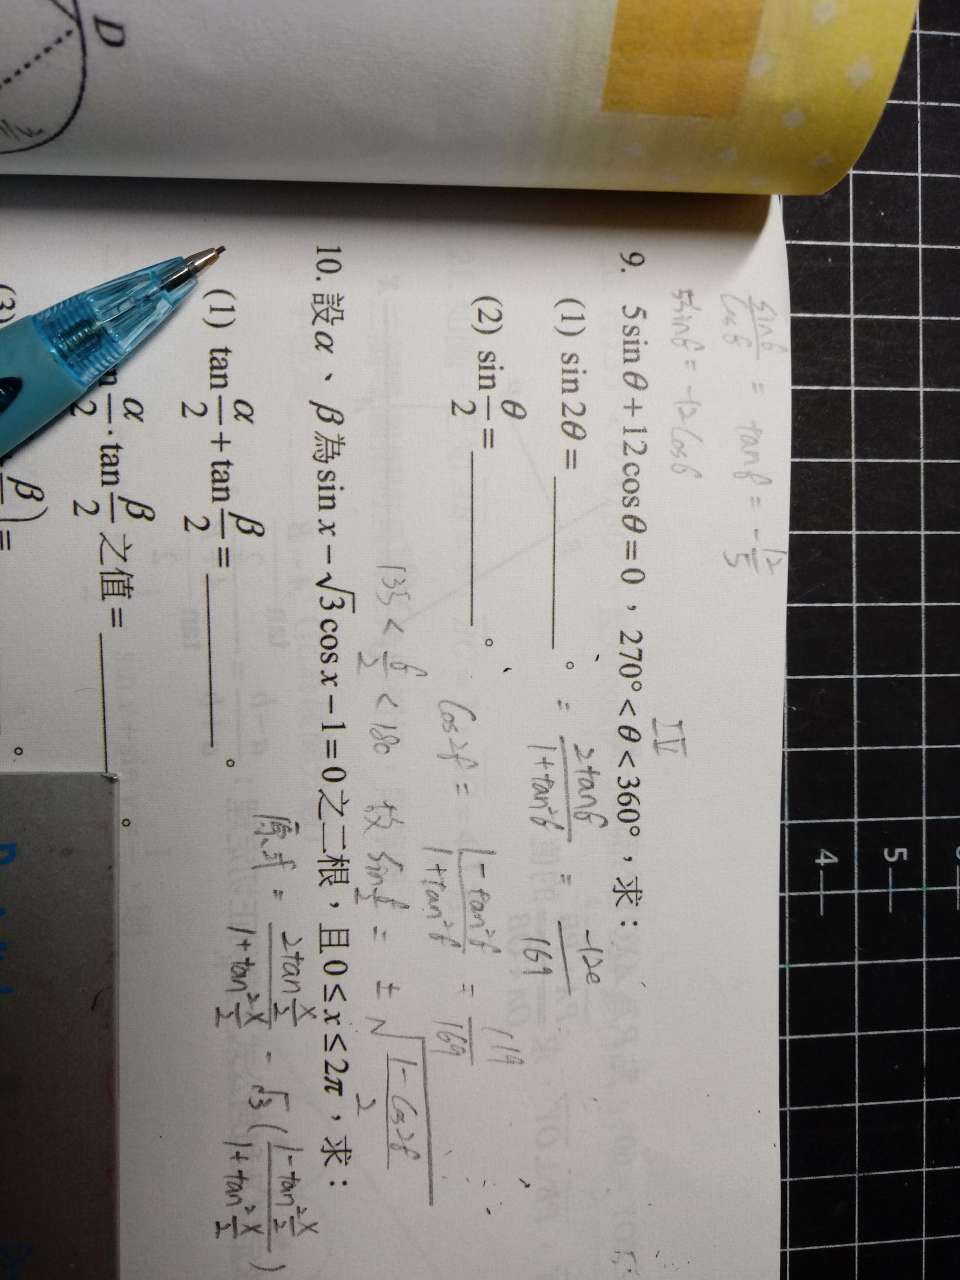 D
sinθ/cosθ = tanθ = -12/5
5sinθ = -12cosθ
IV
9. 5sinθ+12cosθ=0，270°<θ<360°，求：
(1) sin2θ=______。 = 2tanθ/1+tan²θ = -120/169
(2) sin θ/2=______。
cos2θ = 1-tan²θ/1+tan²θ = 119/169
135 < θ/2 < 180 故 sin θ/2 = ±√1-cos2θ/2
10. 設α、β為sin x-√3cos x-1=0之二根，且0≤x≤2π，求：
(1) tan α/2+tan β/2=______。
原式 = 2tan x/2/1+tan² x/2 - √3(1-tan² x/2/1+tan² x/2)
α/2·tan β/2之值=______。
(3)
β/)=
。
5
4